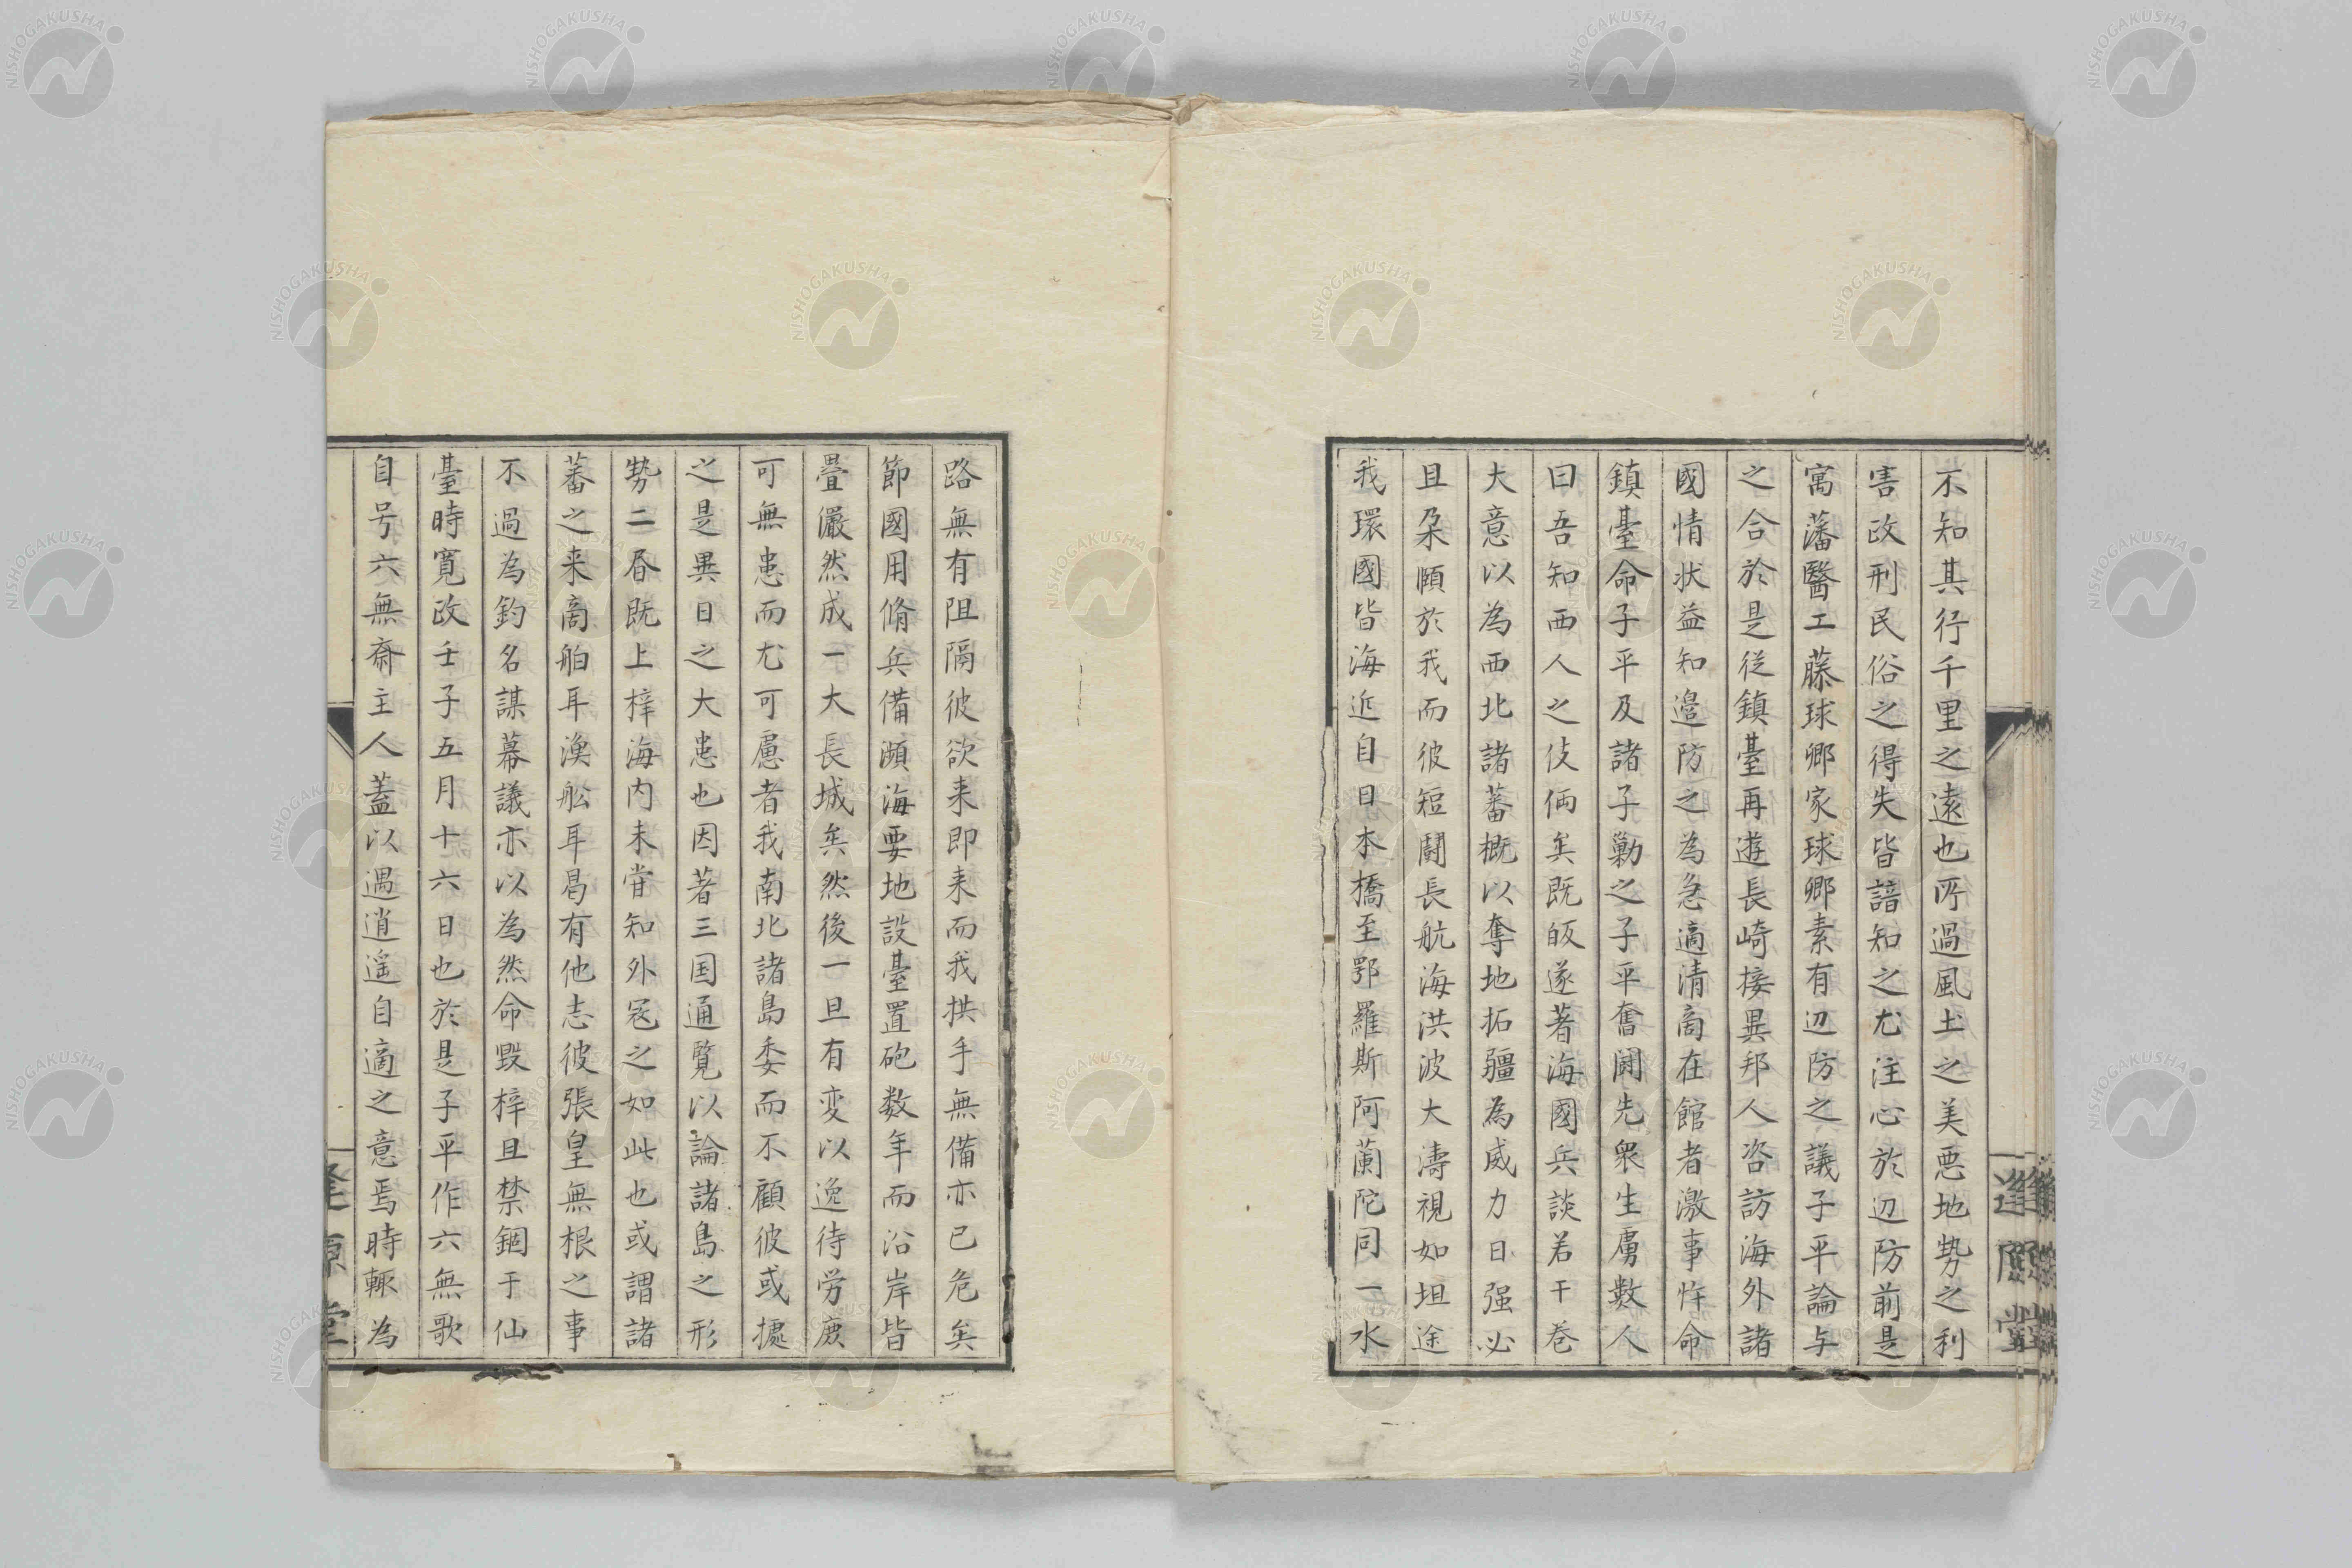 不知其行千里之遠也所過風土之美悪地勢之利
害政刑民俗之得失皆諳知之尤注心於辺防前是
寓藩醫工藤球卿家球卿素有辺防之議子平論与
之合於是従鎮臺再遊長崎接異邦人咨訪海外諸
國情状益知邉防之為急適清商在館者激事悖命
鎮臺命子平及諸子勦之子平奮闘先衆生虜數人
曰吾知西人之伎倆矣既皈遂著海國兵談若干巻
大意以為西北諸蕃概以奪地拓疆為威力日强必
且朶頤於我而彼短闘長航海洪波大濤視如坦途
我環國皆海近自日本橋至鄂羅斯阿蘭陀同一水
路無有阻隔彼欲来即来而我拱手無備亦已危矣
節國用脩兵備瀕海要地設臺置砲数年而沿岸皆
疊儼然成一大長城矣然後一旦有変以逸待労庶
可無患而尤可慮者我南北諸島委而不顧彼或據
之是異日之大患也因著三国通覧以論諸島之形
勢二昏既上梓海内未甞知外冦之如此也或謂諸
蕃之来商舶耳漁舩耳曷有他志彼張皇無根之事
不過為釣名謀幕議亦以為然命毀梓且禁錮于仙
臺時寛政壬子五月十六日也於是子平作六無歌
自号六無齋主人蓋以遇逍遥自適之意焉時輙為
NISHOGAKUSHA